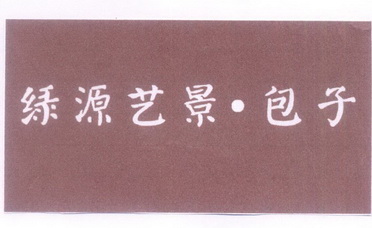 绿源艺景•包子